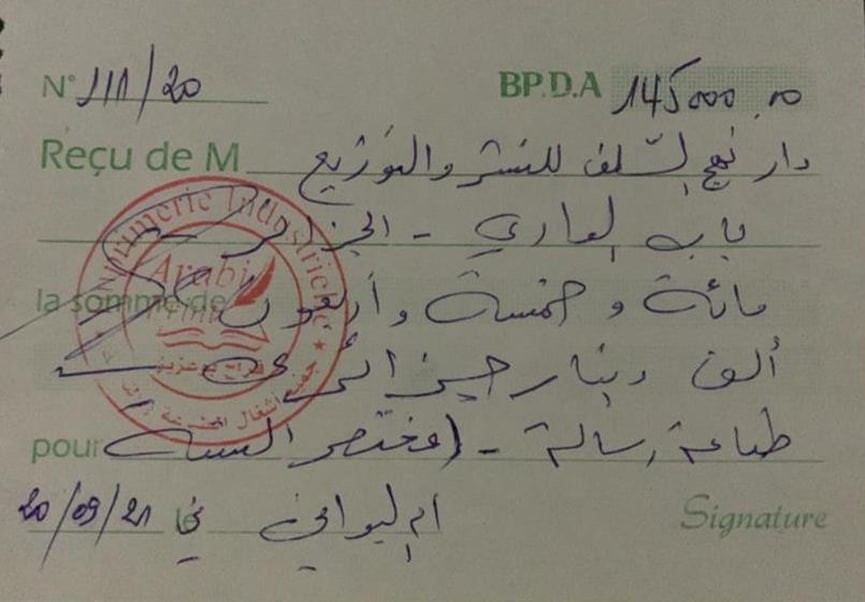 N° 111/20 BP.D.A 145000.00
Reçu de M دار نهج السلف للنشر والتوزيع
باب الوادي - الجزائر
la somme de مائة و خمسة وأربعون
ألف دينار جزائري
pour طباعة رسالة - (مختصر السنة
أم البواقي في 20/09/21 le
Signature
Imprimerie Industrielle
Arabi